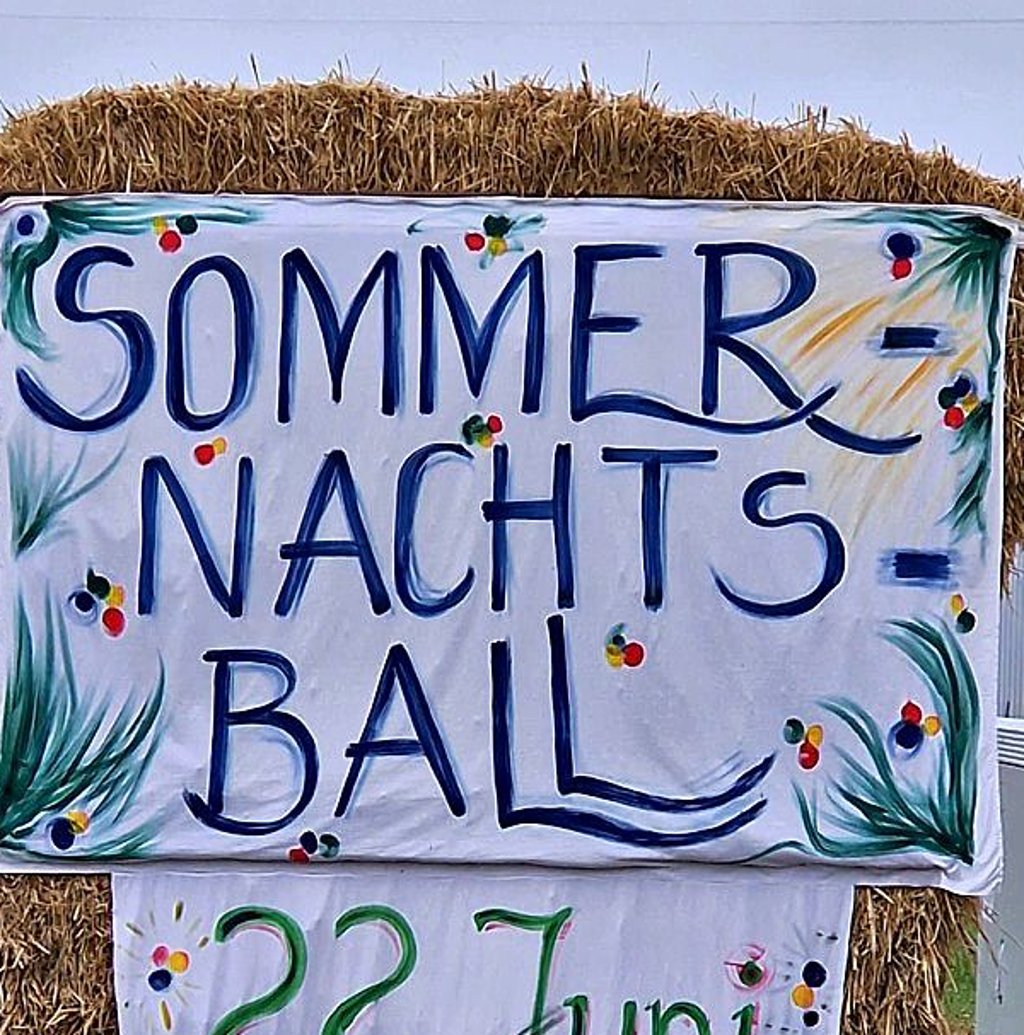 SOMMER-
NACHTS-
BALL
22 Juni